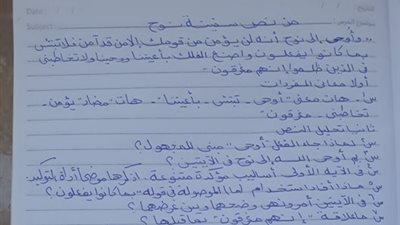 Date: / /
من نص سفينة نوح
"وأوحى إلى نوح أنه لن يؤمن من قومك إلا من قد آمن فلا تبتئس
بما كانوا يفعلون واصنع الفلك بأعيننا ووحينا ولا تخاطبني
في الذين ظلموا إنهم مغرقون"
أولا معاني المفردات
س١ هات معنى "أوحى - تبتئس - بأعيننا" - هات "مضاد يؤمن -
تخاطبني - مغرقون"
ثانيا تحليل النص
س لماذا جاء الفعل "أوحى" مبني للمجهول؟
س بم أوحى الله إلى نوح في الآيتين؟
س في الآية الأولى أساليب مؤكدة متنوعة. اذكرها موضحا أداة التوكيد.
س ماذا أفاد استخدام "ما" الموصولة في قوله "بما كانوا يفعلون"؟
س في الآيتين أمر ونهي وضحها وبين غرضها؟
س ما علاقة "إنهم مغرقون" بما قبلها؟